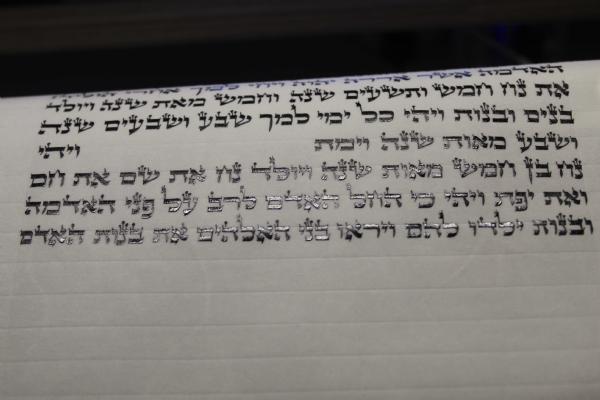 האדמה אשר אררה יהוה ויחי למך אחרי הולידו
את נח חמש ותשעים שנה וחמש מאת שנה ויולד
בנים ובנות ויהי כל ימי למך שבע ושבעים שנה
ושבע מאות שנה וימת ויהי
נח בן חמש מאות שנה ויולד נח את שם את חם
ואת יפת ויהי כי החל האדם לרב על פני האדמה
ובנות ילדו להם ויראו בני האלהים את בנות האדם